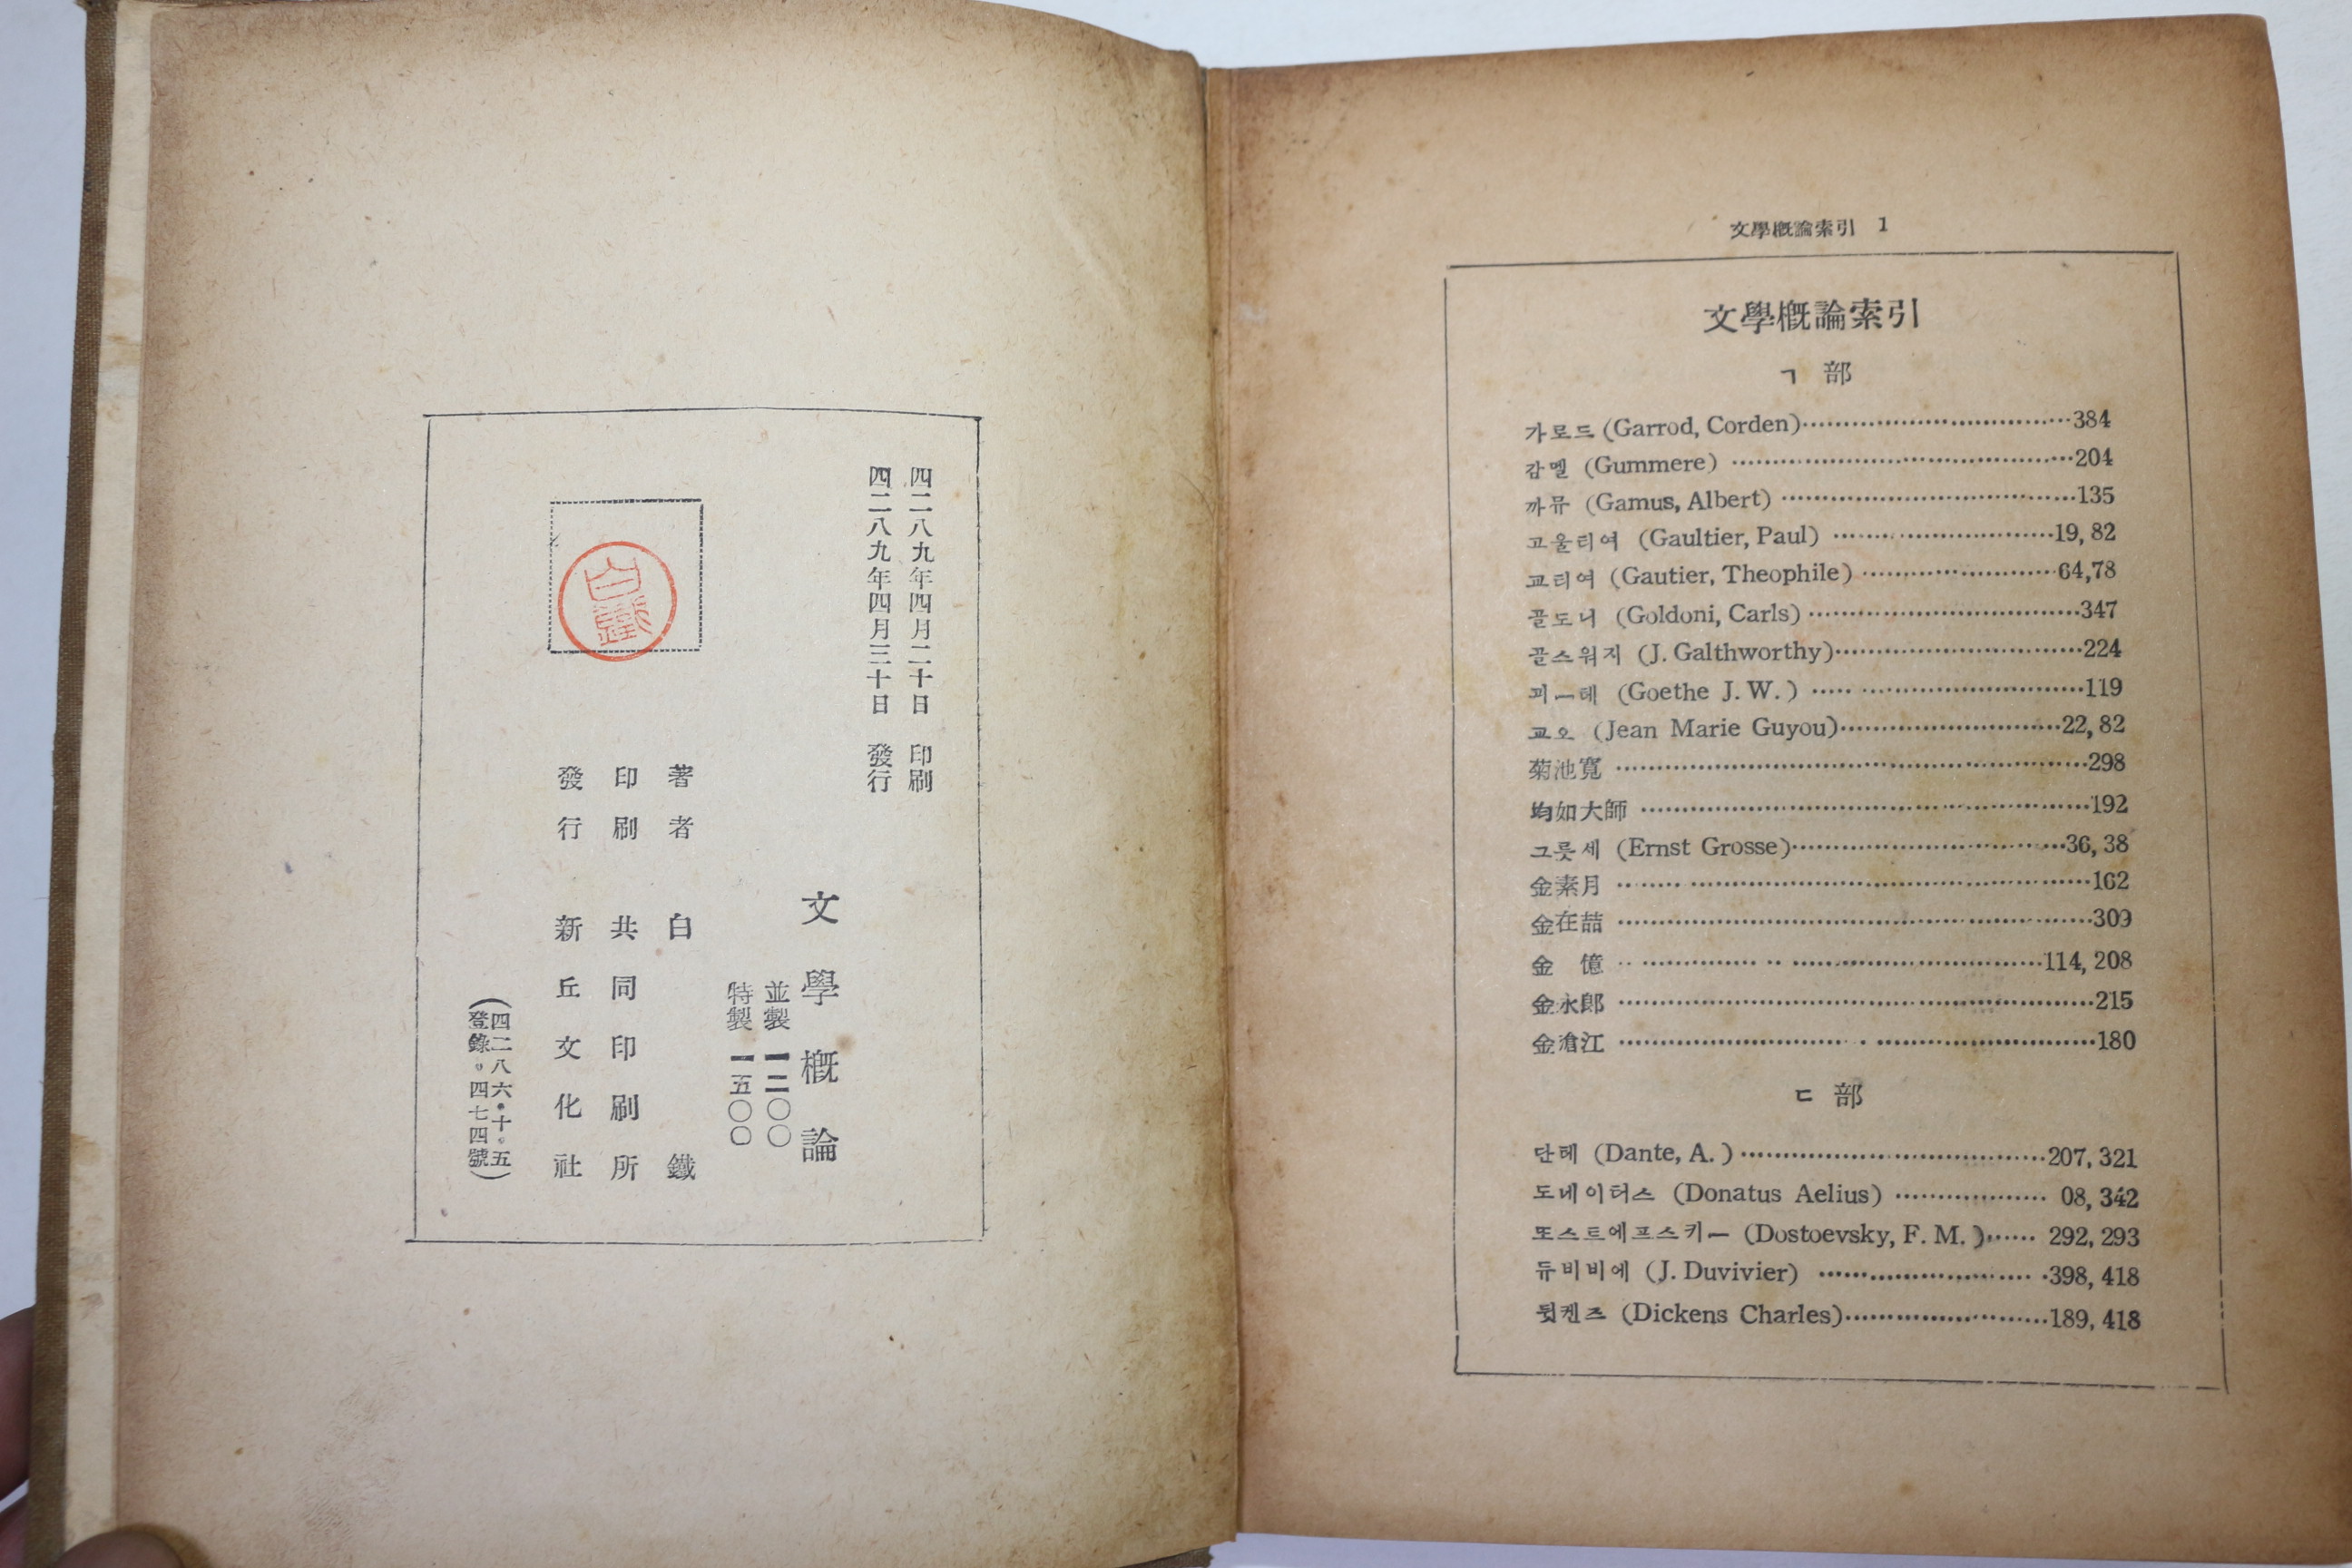 四二八九年四月二十日 印刷
四二八九年四月三十日 發行
文學槪論
並製 一二〇〇
特製 一五〇〇
著者 白鐵
印刷 共同印刷所
發行 新丘文化社
(四二八六•十•五
登錄•四七四號)
白鐵
文學槪論索引 1
文學槪論索引
ㄱ 部
가로드 (Garrod, Corden)…384
감멜 (Gummere) …204
까뮤 (Gamus, Albert) …135
고울티여 (Gaultier, Paul) …19, 82
교티여 (Gautier, Theophile) …64,78
골도니 (Goldoni, Carls) …347
골스워지 (J. Galthworthy)…224
괴ー테 (Goethe J. W.) …119
교오 (Jean Marie Guyou)…22, 82
菊池寬 …298
均如大師 …192
그롯세 (Ernst Grosse)…36, 38
金素月 …162
金在喆 …309
金 億 …114, 208
金永郎 …215
金滄江 …180
ㄷ 部
단테 (Dante, A.) …207, 321
도네이터스 (Donatus Aelius) … 08, 342
또스트에프스키ー (Dostoevsky, F. M.)… 292, 293
듀비비에 (J. Duvivier) …398, 418
딗켄즈 (Dickens Charles)…189, 418